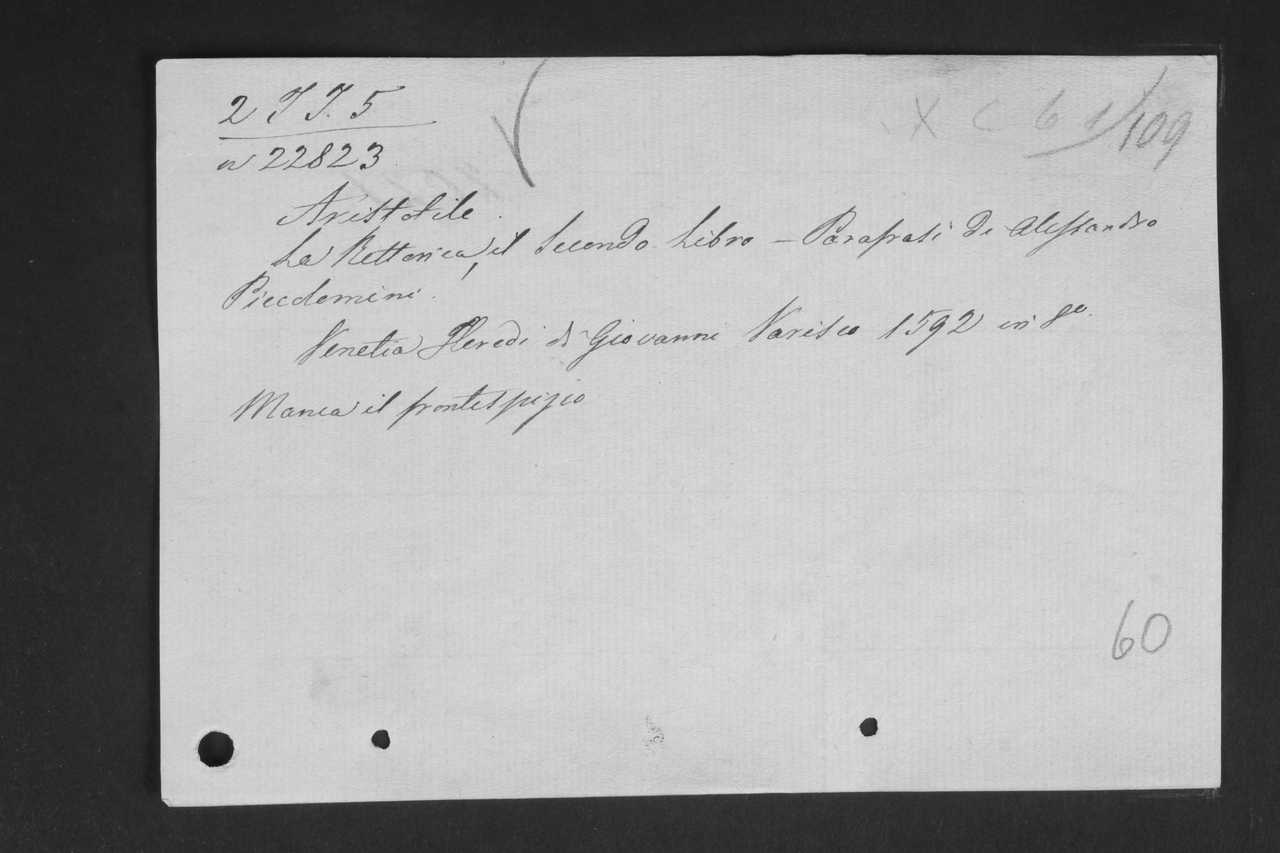 2 J J. 5
X C 6 1/109
n 22823
Aristotile.
La Rettorica, il Secondo Libro - Parafrasi di Alessandro
Piccolomini.
Venetia Heredi di Giovanni Varisco 1592 in 8°.
Manca il frontespizio
60